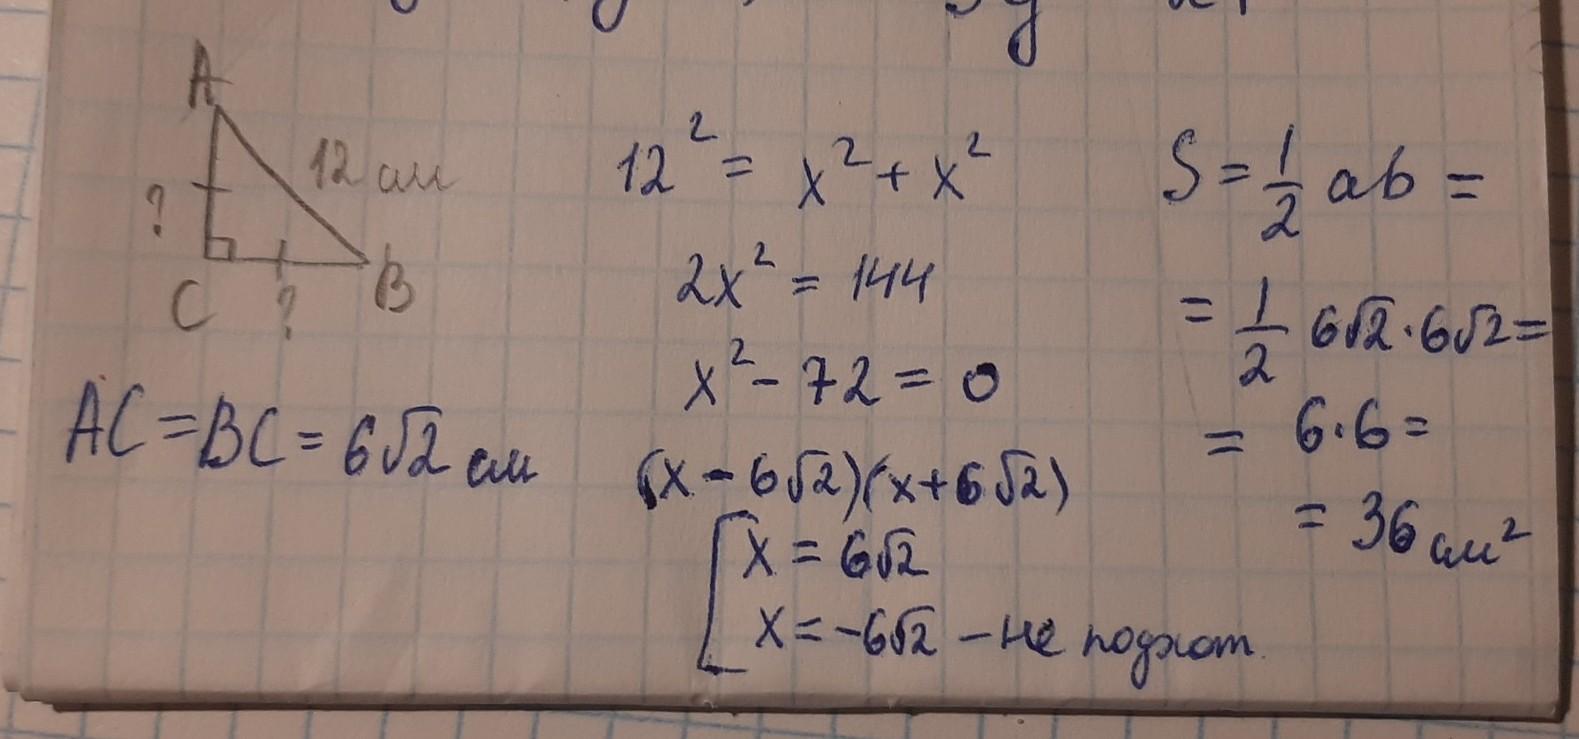 A
12 см
?
C
?
B
AC = BC = 6√2 см
12² = x² + x²
2x² = 144
x² - 72 = 0
(x - 6√2)(x + 6√2)
x = 6√2
x = -6√2 - не подхот.
S = 1/2 ab =
= 1/2 6√2 · 6√2 =
= 6·6 =
= 36 см²